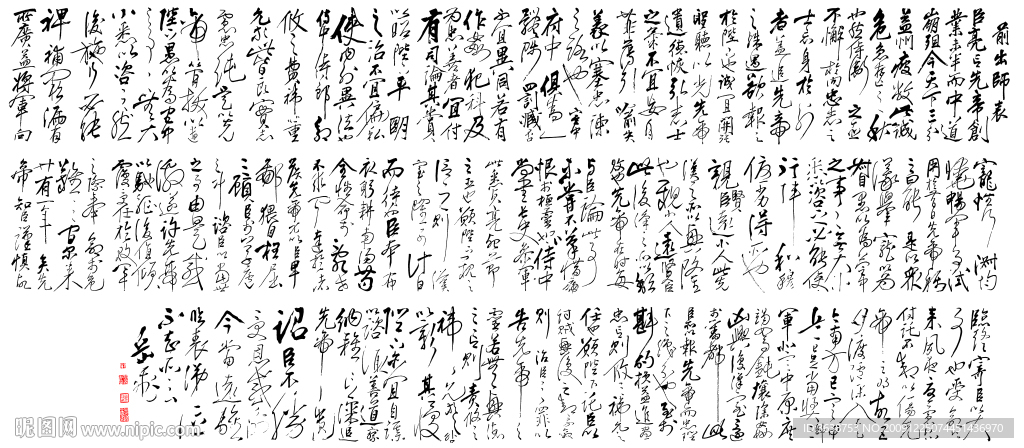 前出師表
臣亮言先帝創
業未半而中道
崩殂今天下三分
益州疲敝此誠
危急存亡之秋
也然侍衛之臣
不懈於內忠志之
士忘身於外
者蓋追先帝
之殊遇欲報之
於陛下也誠宜開張
聖聽以光先帝
遺德恢弘志士
之氣不宜妄自
菲薄引喻失
義以塞忠諫
之路也宮中
府中俱為一
體陟罰臧否
不宜異同若有
作奸犯科及
為忠善者宜付
有司論其刑賞
以昭陛下平明
之治不宜偏私
使內外異法也
侍中侍郎郭
攸之費禕董
允等此皆良實志
慮忠純是以先
帝簡拔以遺
陛下愚以為宮中
之事事無大
小悉以咨之然
後施行必能
裨補闕漏有
所廣益將軍向
寵性行淑均
曉暢軍事試
用於昔日先帝稱
之曰能是以眾
議舉寵以為
督愚以為營中
之事事無大小
悉咨之必能使
行陣和穆
優劣得所也
親賢臣遠小人此
先漢所以興隆
也親小人遠賢臣
此後漢之所以傾
頹也先帝在時每
與臣論此事
未嘗不嘆息痛
恨於桓靈也侍中
尚書長史參軍
此悉貞亮死節
之臣也願陛下親之
信之則漢
室之隆可計日
而待也臣本布
衣躬耕南陽苟
全性命於亂世
不求聞達於諸
侯先帝不以臣卑
鄙猥自枉屈
三顧臣於草廬
之中諮臣以當世
之事由是感
激遂許先帝
以驅馳後值傾
覆受任於敗軍
之際奉命於危
難之間爾來
廿有一年矣先
帝知臣謹慎故
臨終寄臣以大
事也受命以
來夙夜憂嘆恐
付託不效以傷先
帝之明故五
月渡瀘深入
今南方已定
兵甲已足當獎帥三
軍北定中原庶
竭駑鈍攘除姦
凶興復漢室還
於舊都此
臣所以報先帝而忠陛
下之職分也至於
斟酌損益進盡
忠言則攸之禕允之
任也願陛下託臣以
討賊興復之效不效
則治臣之罪以
告先帝之
靈若無興德
之言則責攸之
禕允等
以彰其慢
陛下亦宜自謀
以諮諏善道察
納雅言深追
先帝遺
詔臣不勝
受恩感激
今當遠離
臨表涕泣
不知所云
岳飛
昵图网 www.nipic.com